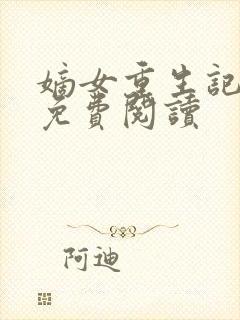 嫡女重生記
免費閱讀
阿迪